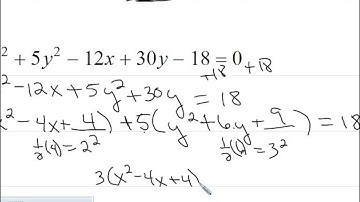 ² + 5y² − 12x + 30y − 18 = 0
+18 +18
² − 12x + 5y² + 30y = 18
x² − 4x + 4) + 5(y² + 6y + 9) = 18
½(4) = 2² ½(6) = 3²
3(x² − 4x + 4)